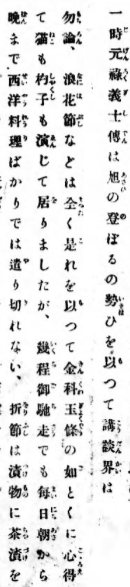 一時元祿義士傳は旭の登ぼるの勢ひを以つて講談界は
勿論、浪花節などは全く是れを以つて金科玉條の如とくに心得
て猫も杓子も演じて居りましたが、幾程御馳走でも每日朝から
晚まで西洋料理ばかりでは遣り切れない、折節は漬物に茶漬を